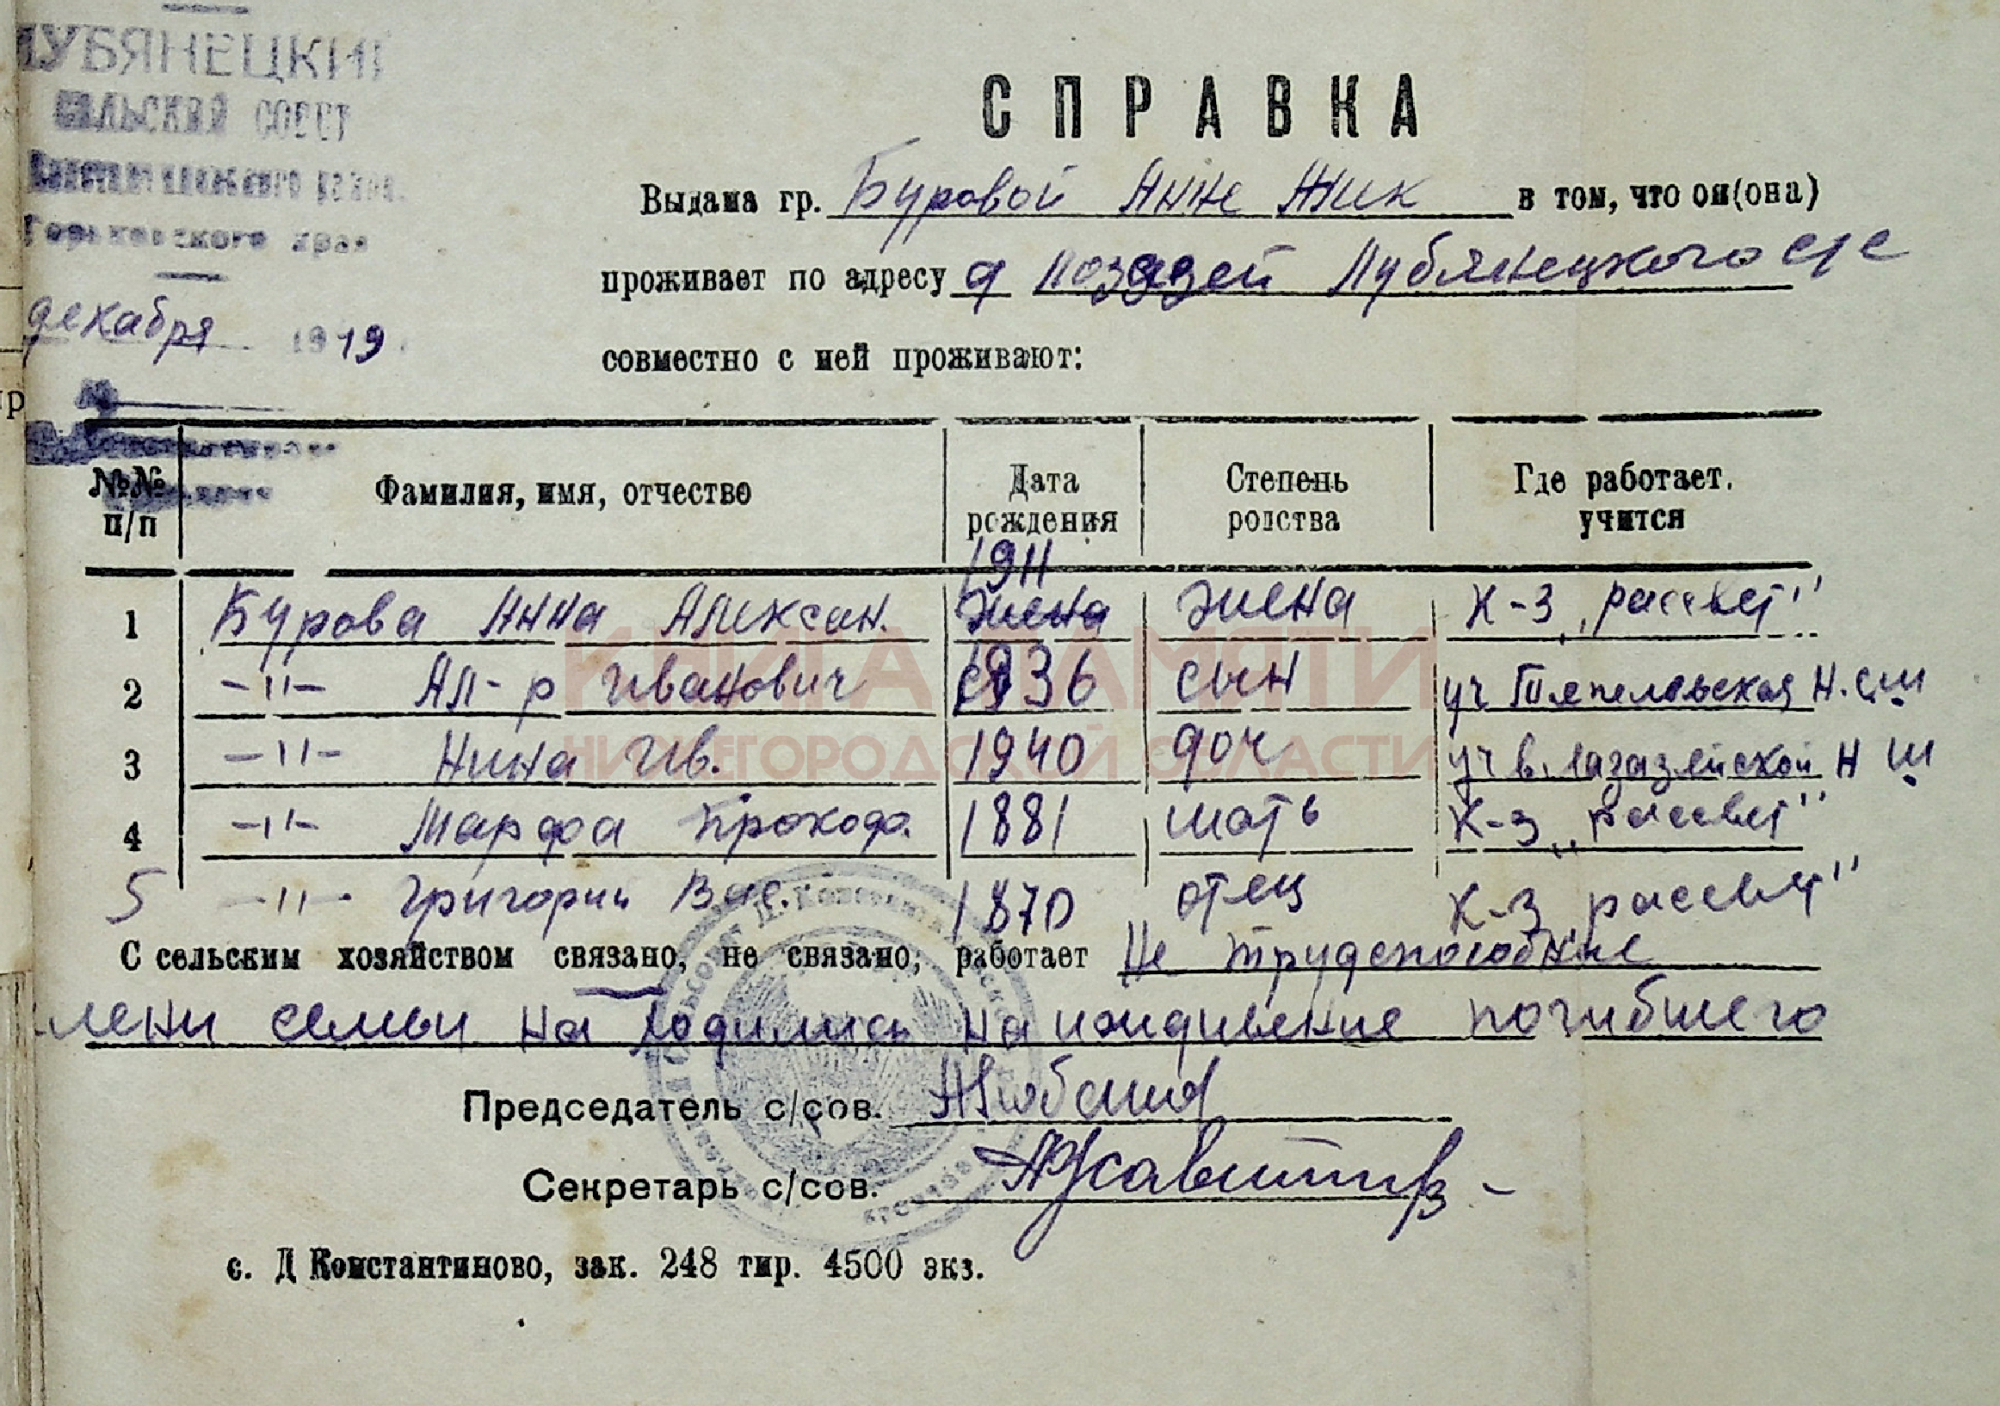 ЛУБЯНЕЦКИЙ
СЕЛЬСКИЙ СОВЕТ
Константиновского район.
Горьковского края
декабря 1949.
№
СПРАВКА
Выдана гр. Буровой Анне в том, что он(она)
проживает по адресу д Лубянецкого с/с
совместно с ней проживают:
№№ п/п Фамилия, имя, отчество Дата рождения Степень родства Где работает. учится
1 Бурова Анна Алексан. 1911 жена жена К-з „рассвет"
2 -"- Ал-р Иванович 1936 сын уч Н.сш
3 -"- Нина Ив. 1940 доч уч в Н ш
4 -"- Марфа Прокоф. 1881 мать К-з „рассвет"
5 -"- Григорий Вас. 1870 отец К-з рассвет"
С сельским хозяйством связано, не связано, работает Не трудспособные
члени семьи на ходились на иждивение погибшего
Председатель с/сов.
Секретарь с/сов.
с. Д Константиново, зак. 248 тир. 4500 экз.
КНИГА ПАМЯТИ
НИЖЕГОРОДСКОЙ ОБЛАСТИ